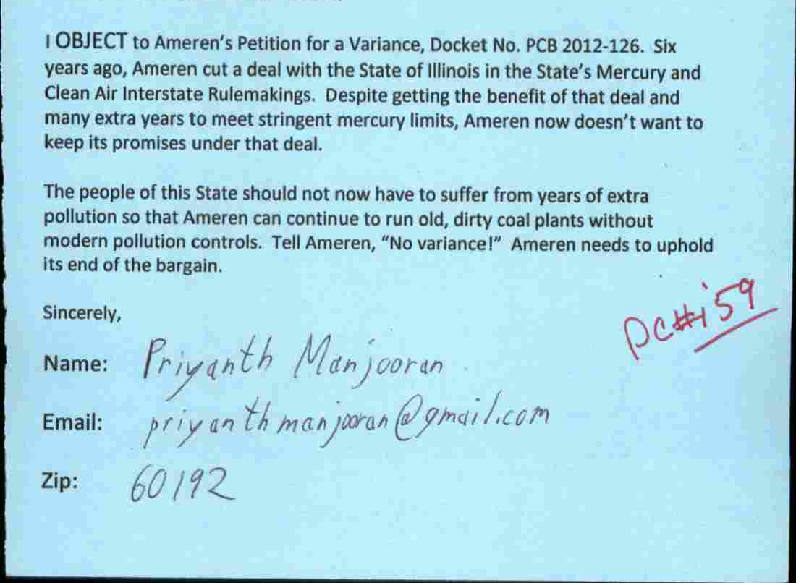 I OBJECT to Ameren's Petition for a Variance, Docket No. PCB 2012-126. Six
years ago, Ameren cut a deal with the State of Illinois in the State's Mercury and
Clean Air Interstate Rulemakings. Despite getting the benefit of that deal and
many extra years to meet stringent mercury limits, Ameren now doesn't want to
keep its promises under that deal.
The people of this State should not now have to suffer from years of extra
pollution so that Ameren can continue to run old, dirty coal plants without
modern pollution controls. Tell Ameren, "No variance!" Ameren needs to uphold
its end of the bargain.
Sincerely,
PC#159
Name: Priyanth Manjooran
Email: priyanthmanjooran@gmail.com
Zip: 60192